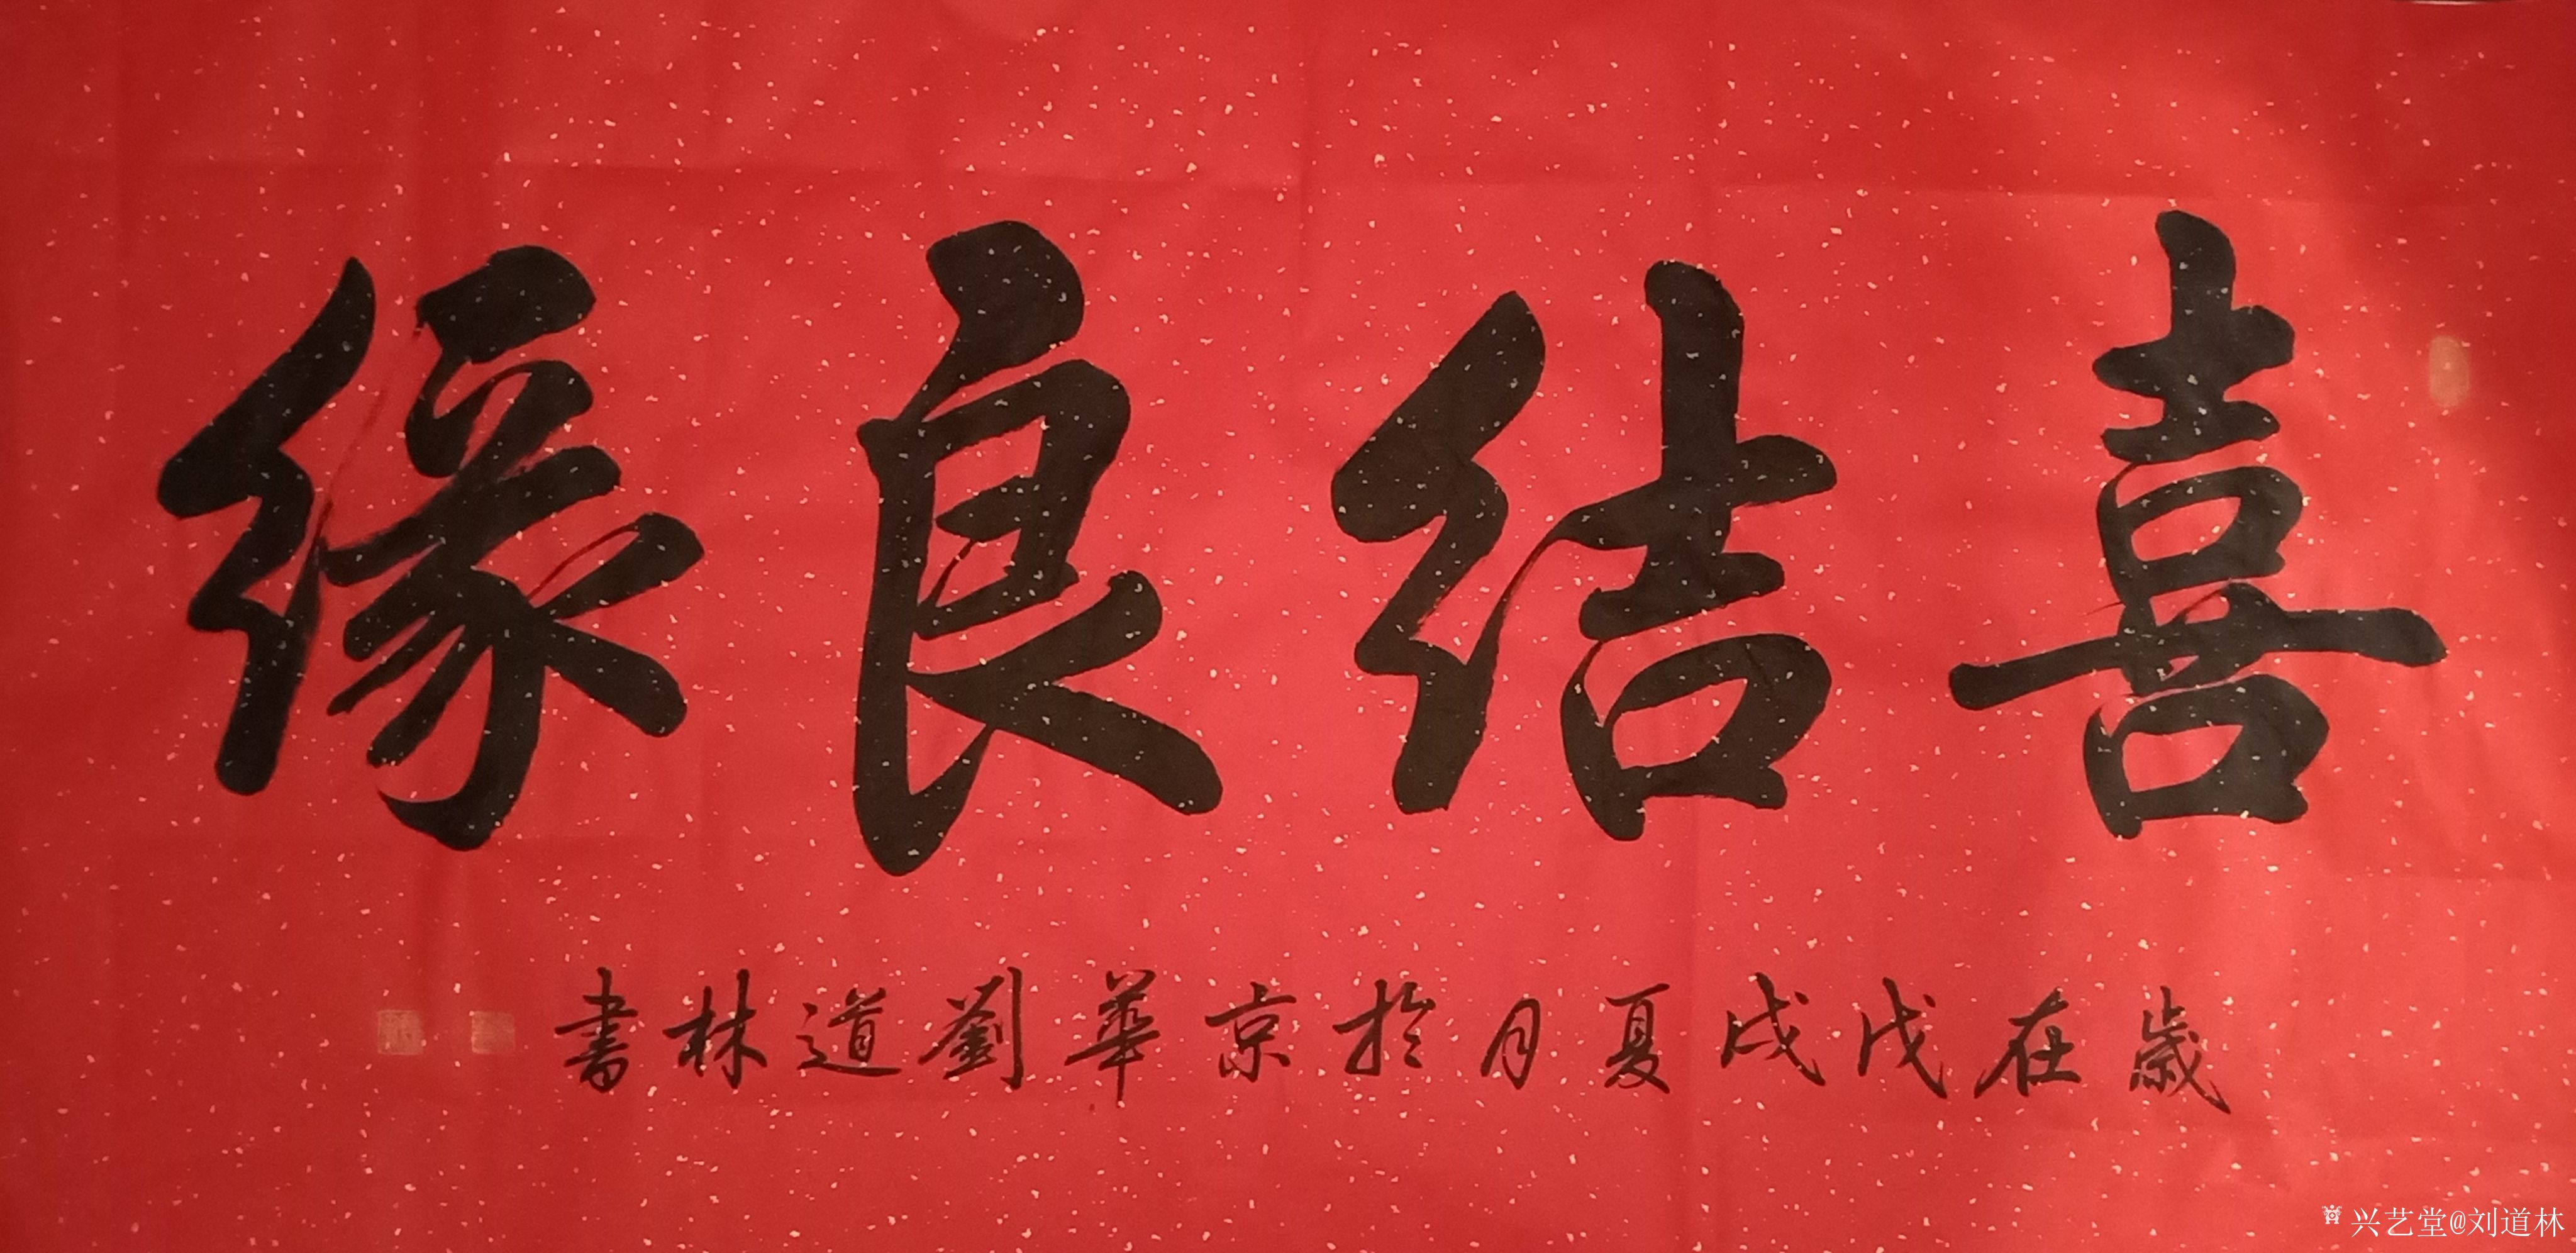 喜結良緣
歲在戊戌夏月於京華劉道林書
兴艺堂@刘道林